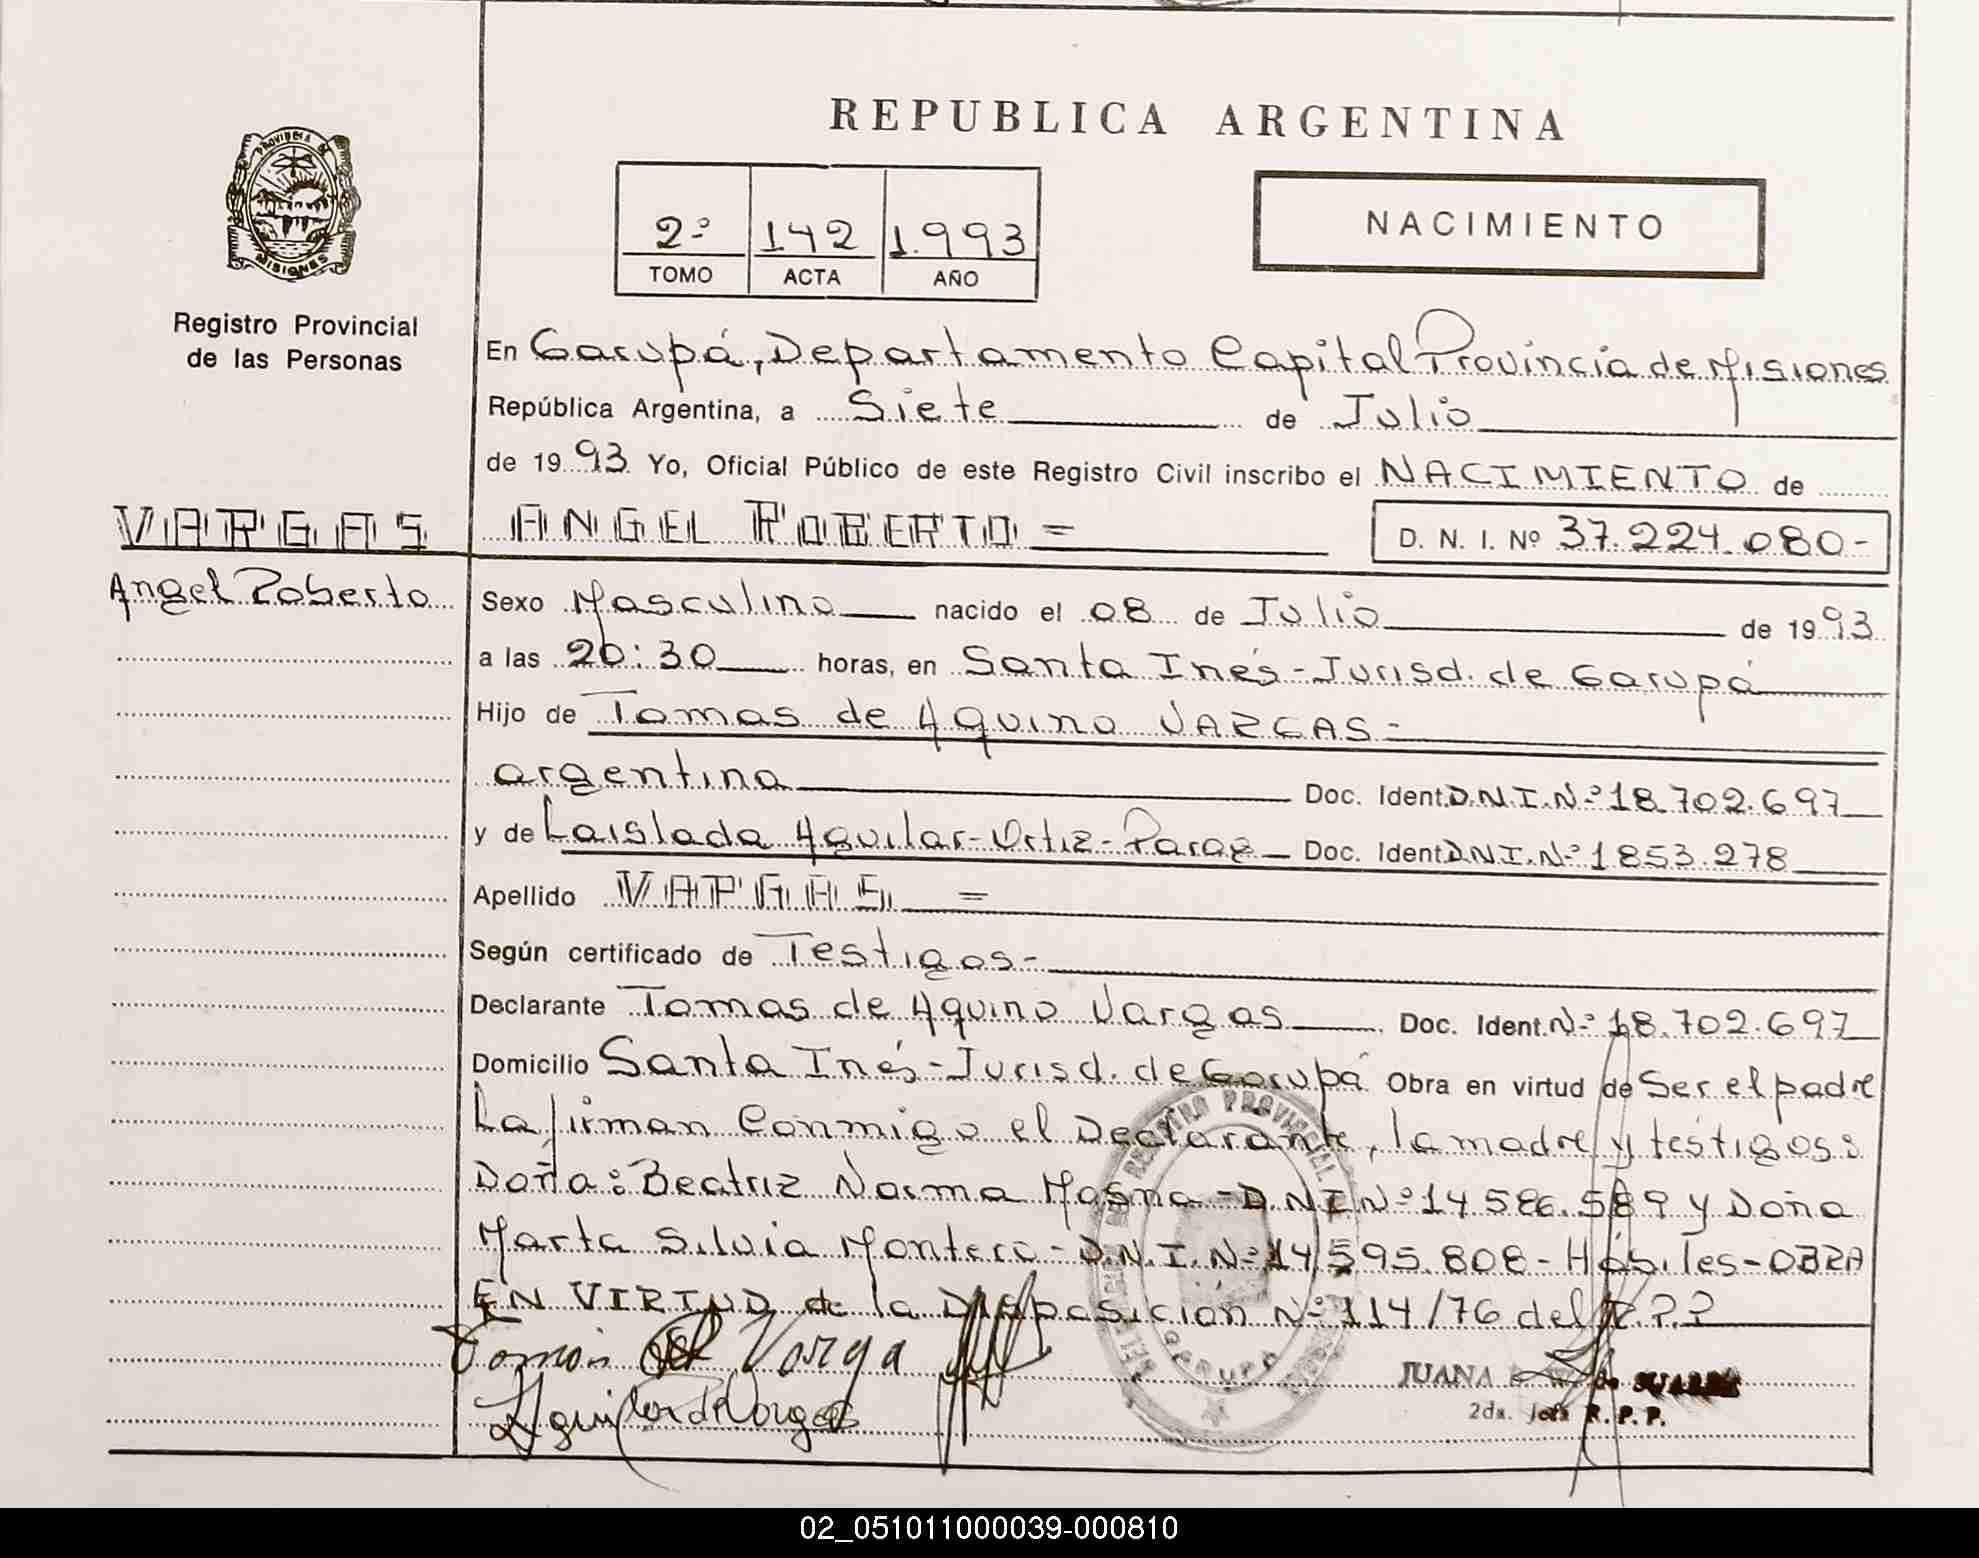 REPUBLICA ARGENTINA
PROVINCIA DE
MISIONES
Registro Provincial
de las Personas
2º 142 1.993
TOMO ACTA AÑO
NACIMIENTO
En Garupá, Departamento Capital Provincia de Misiones
República Argentina, a Siete de Julio
de 1993 Yo, Oficial Público de este Registro Civil inscribo el NACIMIENTO de
VARGAS ANGEL ROBERTO = D. N. I. Nº 37.224.080-
Angel Roberto Sexo Masculino nacido el 08 de Julio de 1993
a las 20:30 horas, en Santa Inés - Jurisd. de Garupá
Hijo de Tomas de Aquino VARGAS -
argentina Doc. Ident. D.N.I.Nº 18.702.697
y de Laislada Aguilar - Ortiz - Doc. Ident. D.N.I.Nº 1853.278
Apellido VARGAS =
Según certificado de Testigos -
Declarante Tomas de Aquino Vargas Doc. Ident. Nº 18.702.697
Domicilio Santa Inés - Jurisd. de Garupá Obra en virtud de Ser el padre
La firman Conmigo el Declarante, la madre y testigos:
Doña: Beatriz Norma - D.N.I Nº 14.586.589 y Doña
Marta Silvia Montero - D.N.I.Nº 14.595.808 - Hábiles - OBRA
EN VIRTUD de la Disposicion Nº 114/76 del R.P.P
Vargas
Aguilar de Vargas
JUANA de SUAREZ
2da. Jefa R.P.P.
REGISTRO PROVINCIAL
GARUPA
02_051011000039-000810